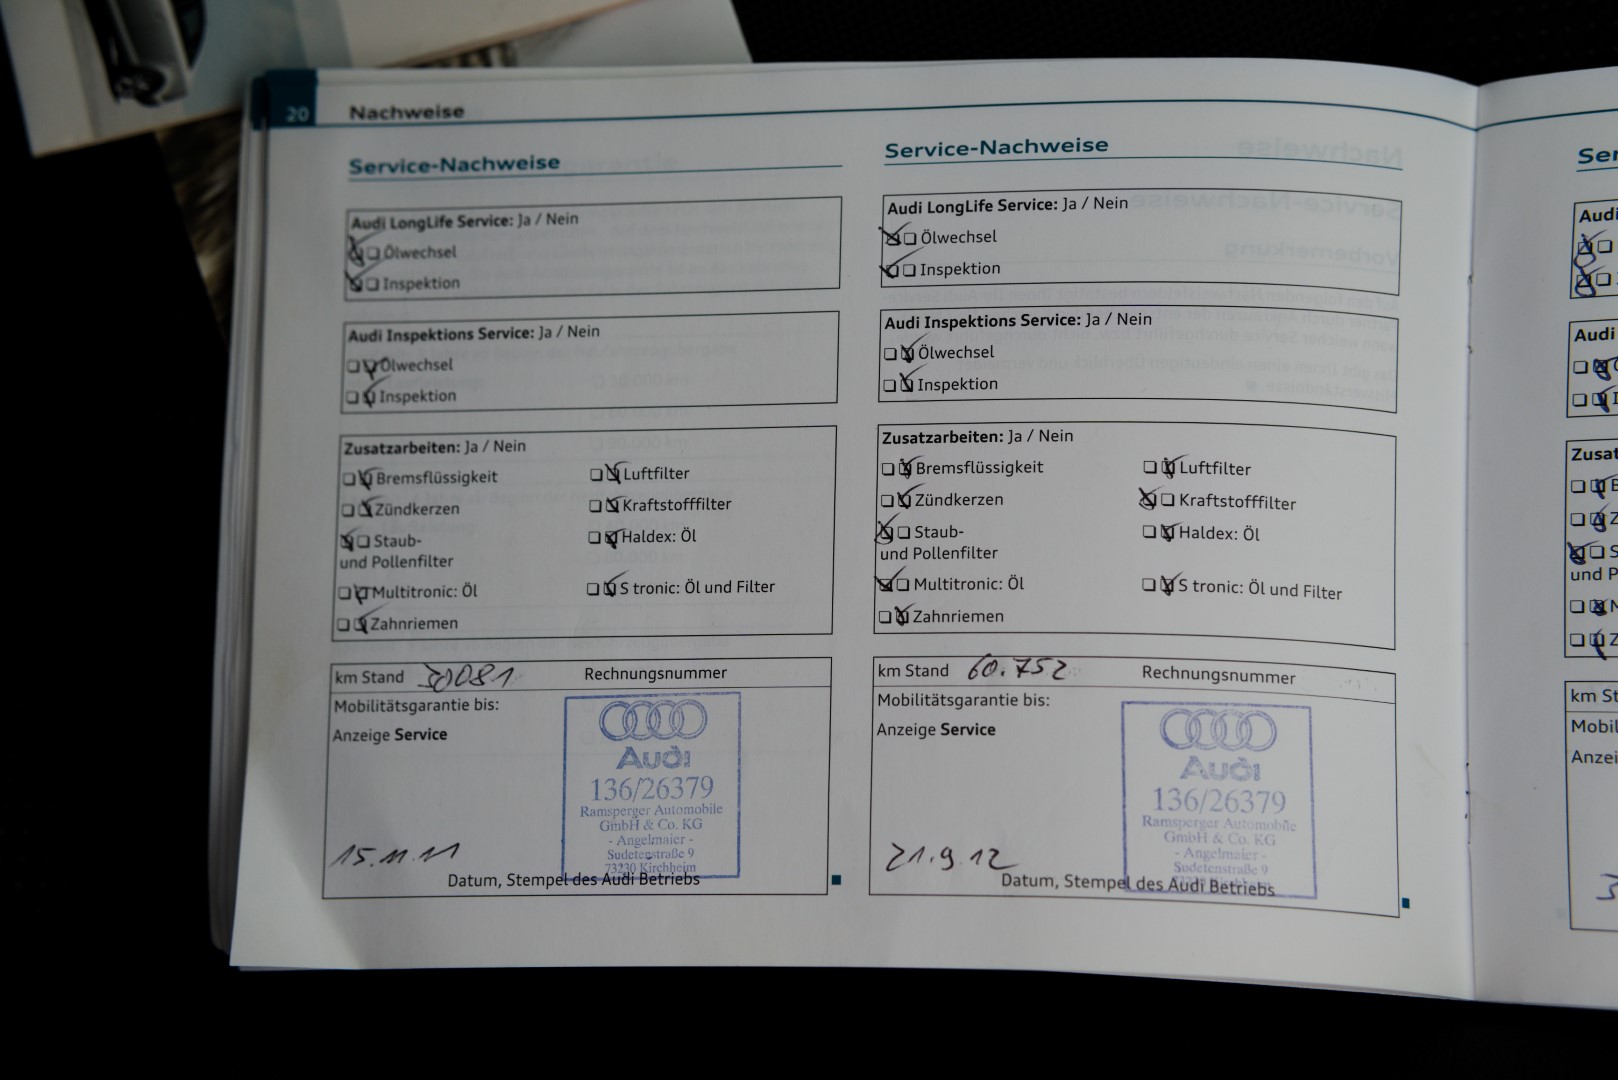 20 Nachweise
Service-Nachweise
Audi LongLife Service: Ja / Nein
Ölwechsel
Inspektion
Audi Inspektions Service: Ja / Nein
Ölwechsel
Inspektion
Zusatzarbeiten: Ja / Nein
Bremsflüssigkeit Luftfilter
Zündkerzen Kraftstofffilter
Staub- Haldex: Öl
und Pollenfilter
Multitronic: Öl S tronic: Öl und Filter
Zahnriemen
km Stand 30081 Rechnungsnummer
Mobilitätsgarantie bis:
Anzeige Service
Audi
136/26379
Ramsperger Automobile
GmbH & Co. KG
- Angelmaier -
Sudetenstraße 9
73230 Kirchheim
15.11.11
Datum, Stempel des Audi Betriebs
Service-Nachweise
Audi LongLife Service: Ja / Nein
Ölwechsel
Inspektion
Audi Inspektions Service: Ja / Nein
Ölwechsel
Inspektion
Zusatzarbeiten: Ja / Nein
Bremsflüssigkeit Luftfilter
Zündkerzen Kraftstofffilter
Staub- Haldex: Öl
und Pollenfilter
Multitronic: Öl S tronic: Öl und Filter
Zahnriemen
km Stand 60.752 Rechnungsnummer
Mobilitätsgarantie bis:
Anzeige Service
Audi
136/26379
Ramsperger Automobile
GmbH & Co. KG
- Angelmaier -
Sudetenstraße 9
21.9.12
Datum, Stempel des Audi Betriebs
Audi
Audi
und
km